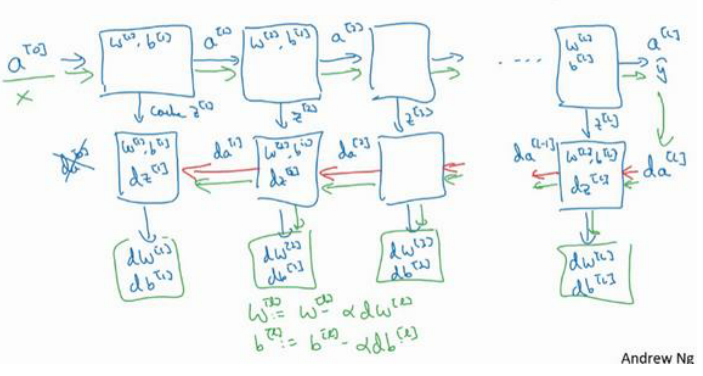 a^[0] w^[1], b^[1] a^[1] w^[2], b^[2] a^[2] .... w^[L] b^[L] a^[L]
x ŷ
cache z^[1] z^[2] z^[3] z^[L]
da^[0] w^[1], b^[1] dz^[1] da^[1] w^[2], b^[2] dz^[2] da^[2] da^[L-1] w^[L], b^[L] dz^[L] da^[L]
dw^[1] dw^[2] dw^[3] dw^[L]
db^[1] db^[2] db^[3] db^[L]
w^[l] := w^[l] - αdw^[l]
b^[l] := b^[l] - αdb^[l]
Andrew Ng